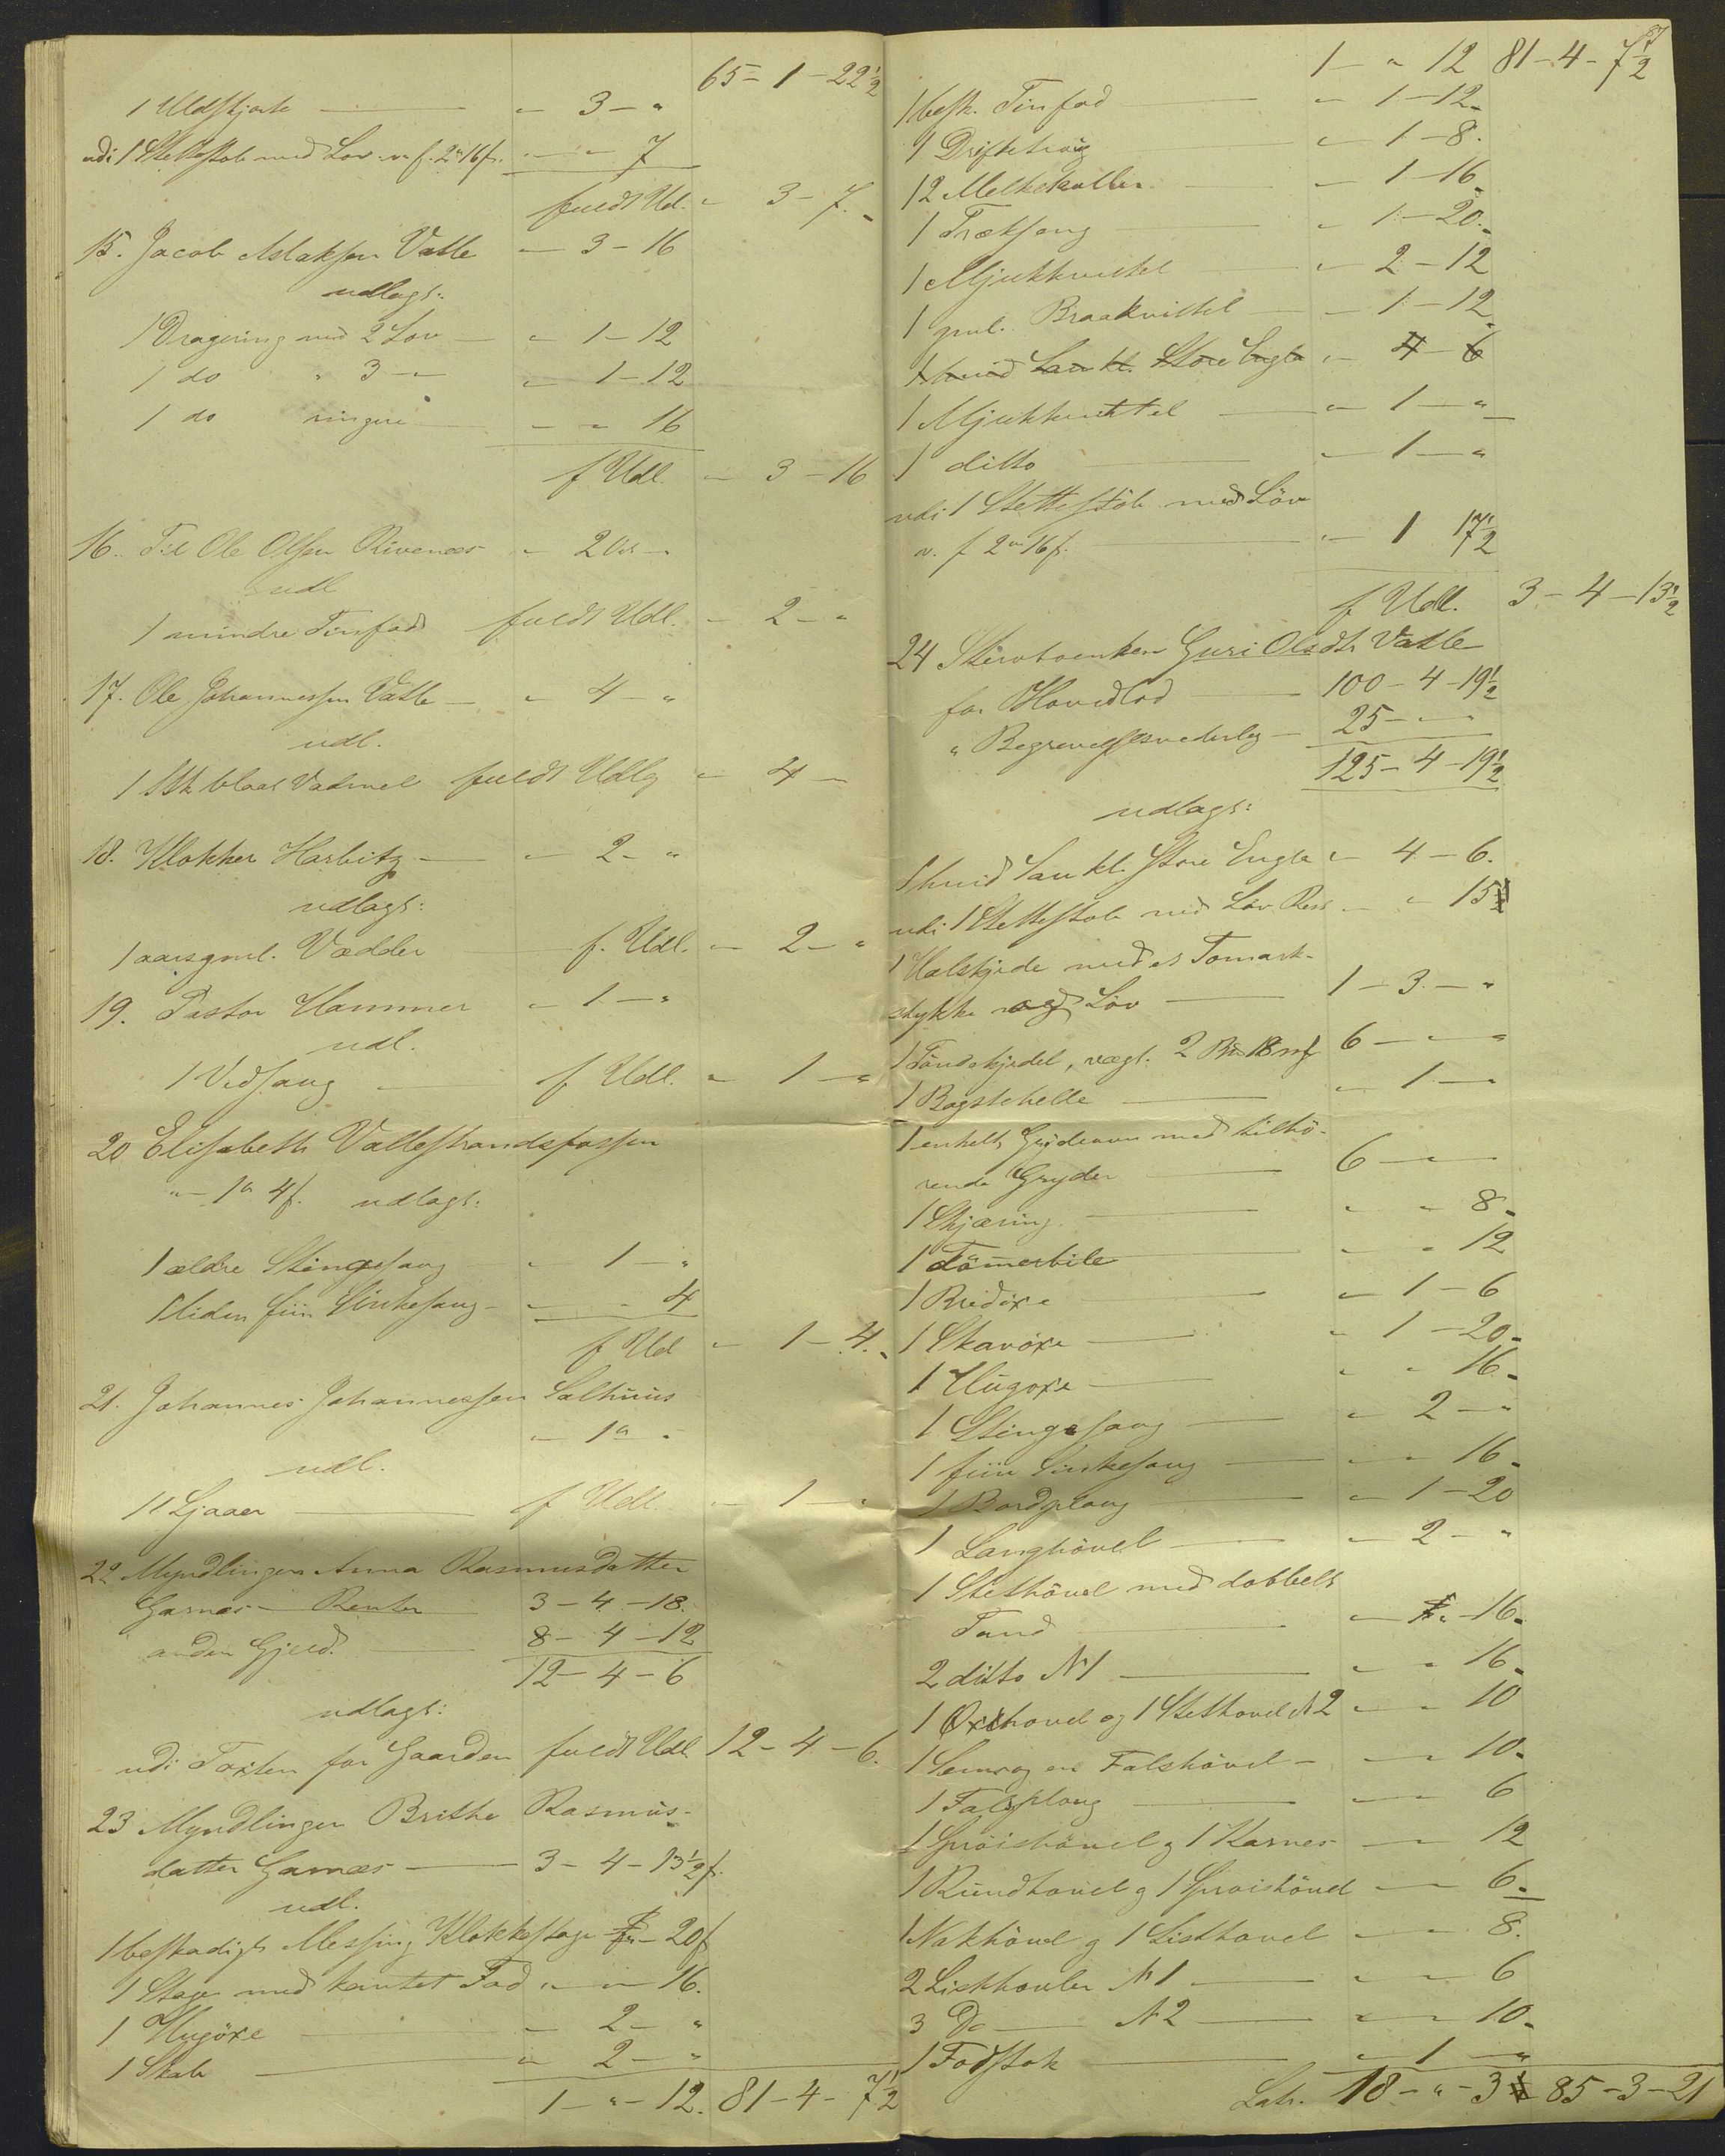 65 - 1 - 22½
1 Uldskjorte — " 3 - "
udi 1 Stettestob med Lov. v. f. 2" 16 f. - " 7
fuldt Ud. " 3 - 7.
15. Jacob Aslaksen Vatle — 3 - 16
udlagt:
1 Dragering med 2 Lov — " 1 - 12
1 do " 3 - " " 1 - 12
1 do ringere — " 16
f Udl. " 3 - 16
16. Til Ole Olsen Rivenes - 2
udl
1 mindre Tinfad fuldt Udl. - 2 - "
17. Ole Johannessen Vatle — " 4 - "
udl.
1 Stk blaat Vadmel fuldt Udlg " 4 -
18. Klokker Harbitz — " 2 - "
udlagt:
1 aarsgml. Vædder f. Udl. - 2 - "
19. Pastor Hammer - 1 - "
udl.
1 Vedsaug f Udl. " 1 - "
20 Elisabeth Vallestrandsfossen
" - 1" 4 f. udlagt:
1 ældre Stingsaug " 1 - "
1 liden fiin Sinkesaug - " - 4
f Ud " 1 - 4.
21. Johannes Johannessen Salhuus
- 1" "
udl.
11 Ljaaer — f Udl. - 1 - "
22 Myndlingen Anna Rasmusdatter
Garnæs - Renter 3 - 4 - 18.
anden Gjeld. 8 - 4 - 12
12 - 4 - 6
udlagt:
udi Taxten for Gaarden fuldt Udl 12 - 4 - 6.
23 Myndlingen Brithe Rasmus-
datter Garnæs — 3 - 4 - 13½ f.
udl.
1 beskadigt Messing Klokkestage - 20 f
1 Stage med kantet Fad " - 16.
1 Hugöxe — - 2 - "
1 Skab — " 2 - "
1 - " - 12. 81 - 4 - 7½
1 - " 12 81 - 4 - 7½
1 besk. Tinfad — " 1 - 12
1 Driftetroug " 1 - 8.
12 Melkekoller - 1 - 16
1 Træksaug - 1 - 20
1 Mjukkvittel — " 2 - 12
1 gml. Braakvittel — " 1 - 12
1 hvid Sau kl. Store Engla " 4 - 6
1 Mjukkvittel — " 1 - "
1 ditto — - 1 - "
udi 1 Stettestöb med Löv
v. f 2" 16 f. — " 1 17½
f Udl. 3 - 4 - 13½
24 Stervboenken Guri Olsdtr Vatle
for Hovedlod — 100 - 4 - 19½
" Begravelsesvederlag — 25 - " - "
125 - 4 - 19½
udlagt:
1 hvid Sau kl. Store Engla " 4 - 6.
udi 1 Stettestob med Löv Rest - " 15
1 Halskjede med et Tomark-
stykke og Löv — 1 - 3 - "
1 Töndekjedel, vægt. 2 18 6 - " - "
1 Bagstehelle — " 1 - "
1 enkelt Grydeovn med tilhö-
rende Gryder — 6 - " -
1 Skjæring — " " 8
1 Tömmerbile " " 12
1 Bredöxe — " 1 - 6
1 Skavöxe — " 1 - 20
1 Hugoxe — " " 16
1 Stingsaug — " 2 - "
1 fiin Sinkesaug — " " 16
1 Bordploug — " 1 - 20
1 Langhövel — " 2 - "
1 Stethövel med dobbelt
Tand — " - 16
2 ditto N 1 — " " 16
1 Oxhovel og 1 Stethovel N 2 " " 10
1 Falshövel — " " 10
1 Falsploug — " 6
1 Sproishövel og 1 Karnes — 12
1 Rundhovel og 1 Sproishövel — 6
1 Nakhövel og 1 Listhovel — " 8.
2 Listhovler N 1 — " " 6
3 Do — N 2 — " " 10
1 Fodstok — " 1 - "
Latr. 18 - " - 3 85 - 3 - 21